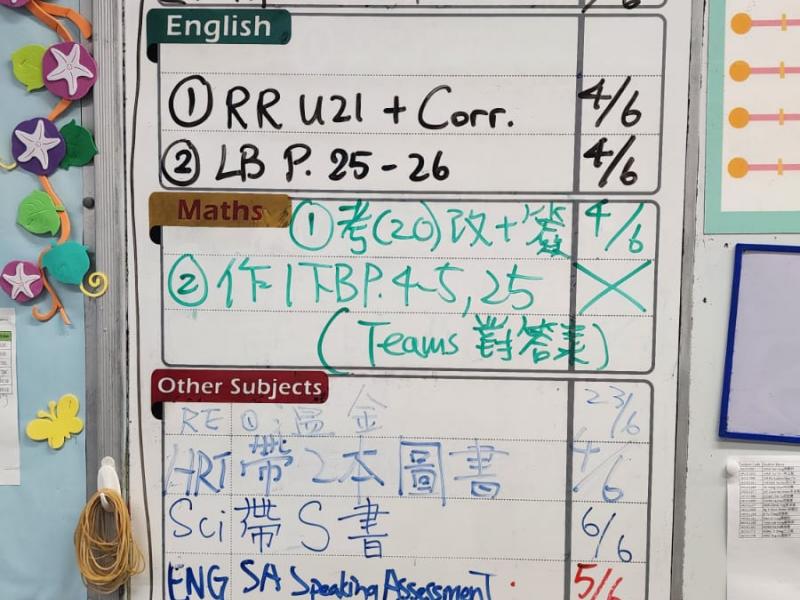 English
① RR U21 + Corr. 4/6
② LB P. 25-26 4/6
Maths
① 考(20)改+簽 4/6
② 作1下B P.4-5, 25
(Teams 對答案)
Other Subjects
RE ① 溫 金 23/6
HRT 帶2本圖書 4/6
Sci 帶S書 6/6
ENG SA Speaking Assessment 5/6